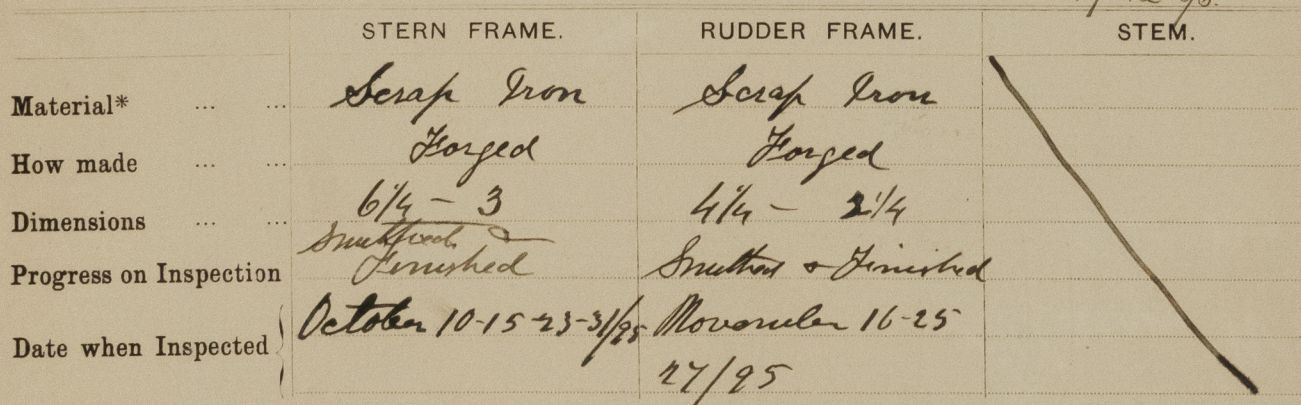 STERN FRAME. RUDDER FRAME. STEM.
Material* ... ... Scrap Iron Scrap Iron
How made ... ... Forged Forged
Dimensions ... ... 6 1/4 - 3 4 1/4 - 2 1/4
Smithed &
Progress on Inspection Finished Smithed & Finished
Date when Inspected October 10-15-23-31/95 November 16-25
27/95